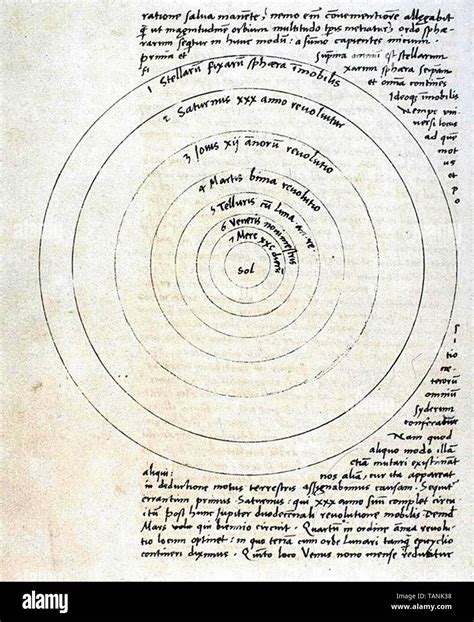 ratione salva manente, nemo em convenientiore allegabit
q̃ ut magnitudinem orbium multitudo tp̃is metiatur, ordo sphæ-
rarum sequitur in hunc modum: a summo capientes initium.
prima et suprema omniũ est stellarum
fixarum sphæra seipsam
et omnia continens
Ideoq; imobilis
Nempe uni
versi locus
ad quẽ
mot
us
et
p
o
1 Stellarũ fixarũ sphæra imobilis
2 Saturnus xxx anno revolvitur
3 Iovis xij annorũ revolutio
4 Martis bima revolutio
5 Telluris cũ Luna an. re
6 Veneris nonimestris
7 Merc xxc dierũ
Sol
S
i
tio
cæ
terorũ
omniũ
syderum
conferatur
Nam quod
aliquo modo illã
etiã mutari existimãt
aliqui: nos aliã, cur ita appareat
in deductione motus terrestris assignabimus causam. Sequit
errantium primus Saturnus: qui xxx anno suũ complet circu
itũ post hunc Jupiter duodecennali revolutione mobilis. Deinde
Mars volo qui biennio circuit. Quartũ in ordine annua revolu-
tio locum optinet: in quo terrã cum orbe Lunari tanq̃ epicyclo
contineri diximus. Quinto loco Venus nono mense reducitur
alamy
Image ID: TANK38
www.alamy.com